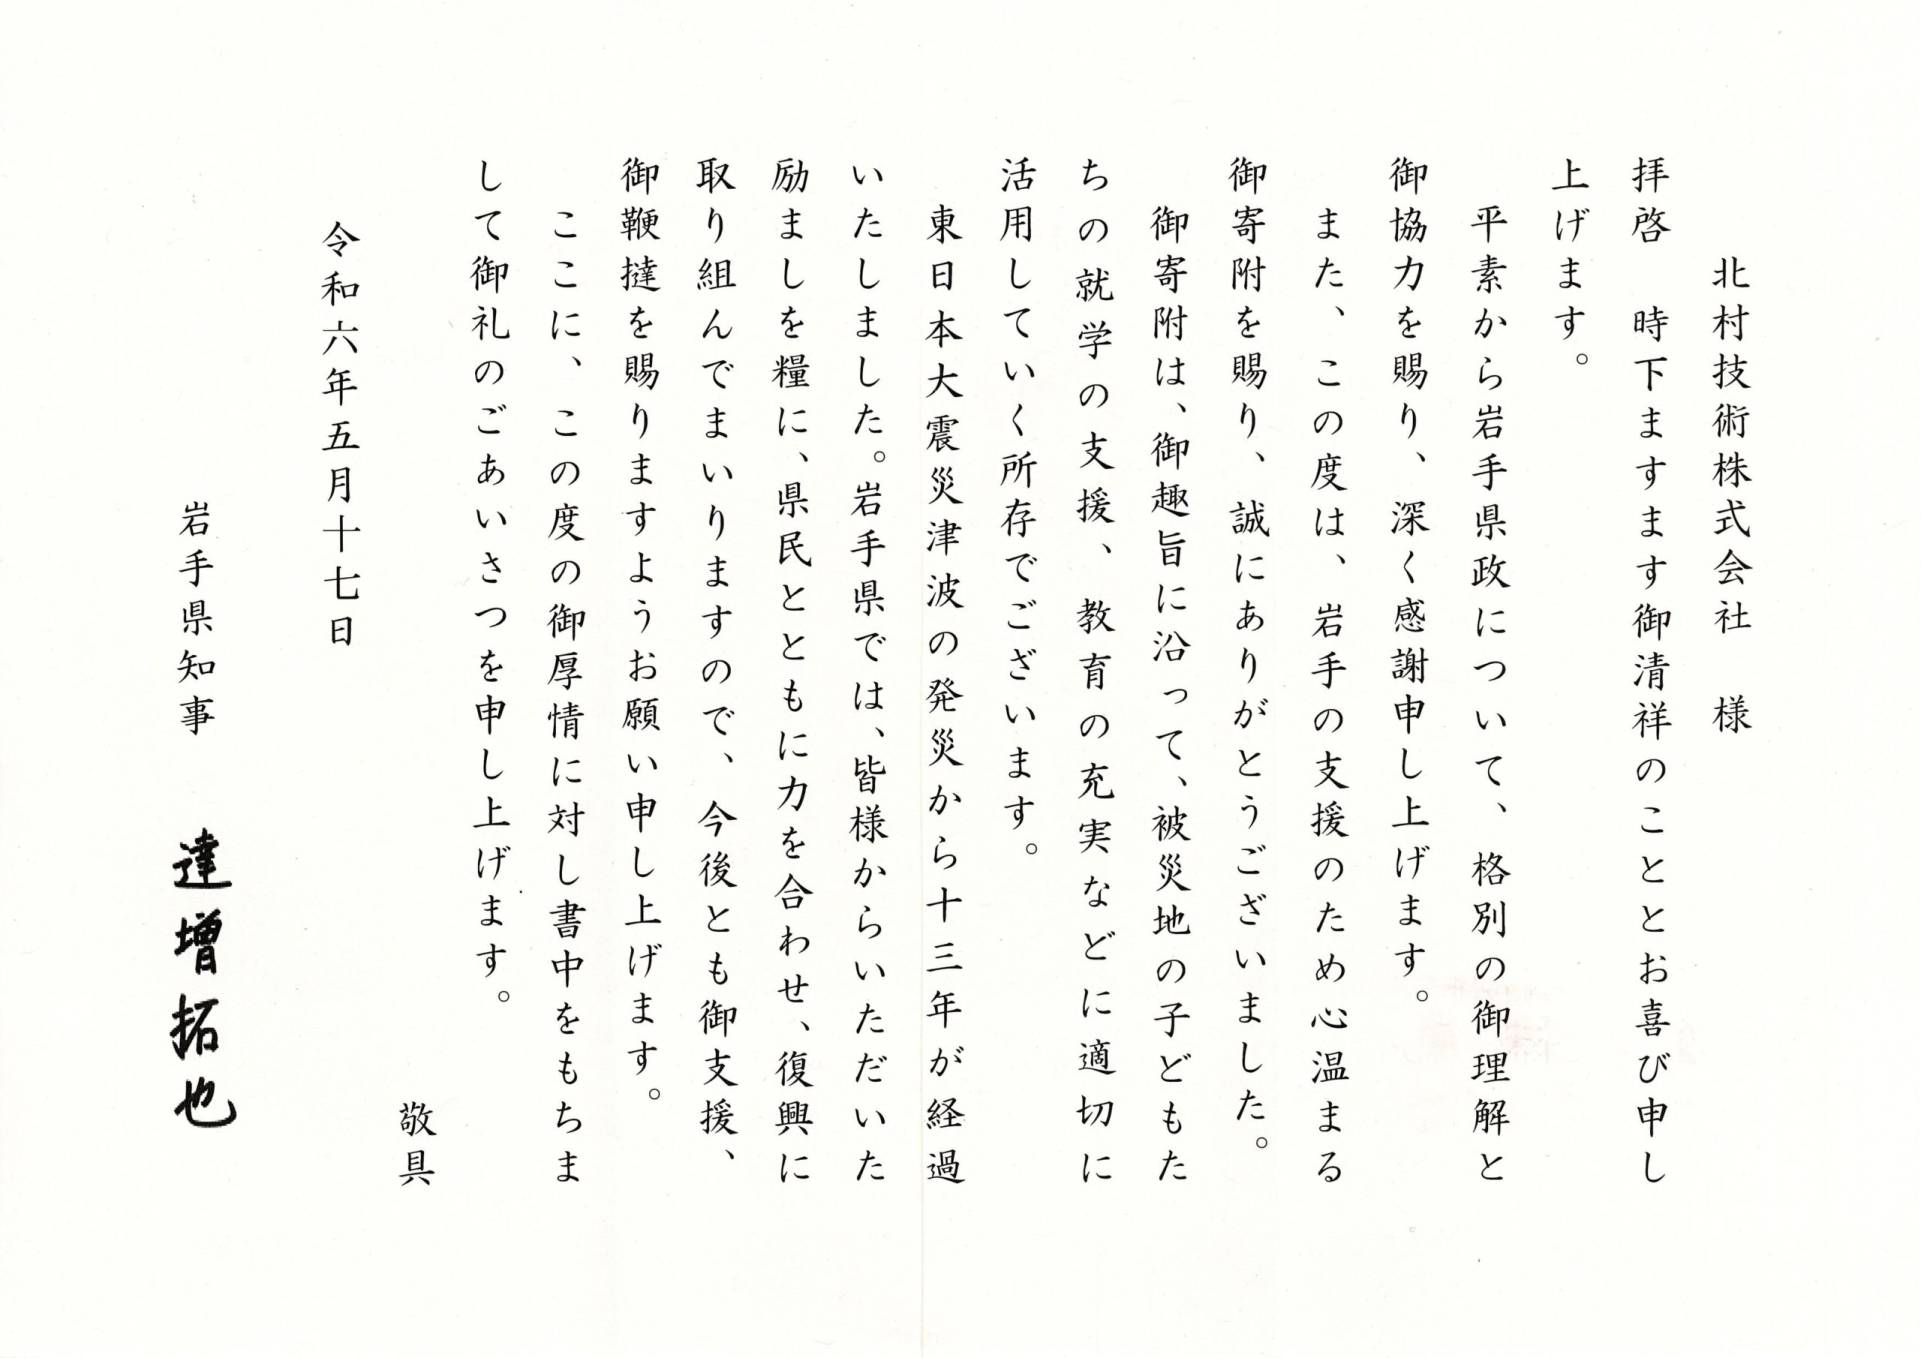 北村技術株式会社　様
拝啓　時下ますます御清祥のこととお喜び申し
上げます。
　平素から岩手県政について、格別の御理解と
御協力を賜り、深く感謝申し上げます。
　また、この度は、岩手の支援のため心温まる
御寄附を賜り、誠にありがとうございました。
　御寄附は、御趣旨に沿って、被災地の子どもた
ちの就学の支援、教育の充実などに適切に
活用していく所存でございます。
　東日本大震災津波の発災から十三年が経過
いたしました。岩手県では、皆様からいただいた
励ましを糧に、県民とともに力を合わせ、復興に
取り組んでまいりますので、今後とも御支援、
御鞭撻を賜りますようお願い申し上げます。
　ここに、この度の御厚情に対し書中をもちま
して御礼のごあいさつを申し上げます。
敬具
令和六年五月十七日
岩手県知事　達増拓也